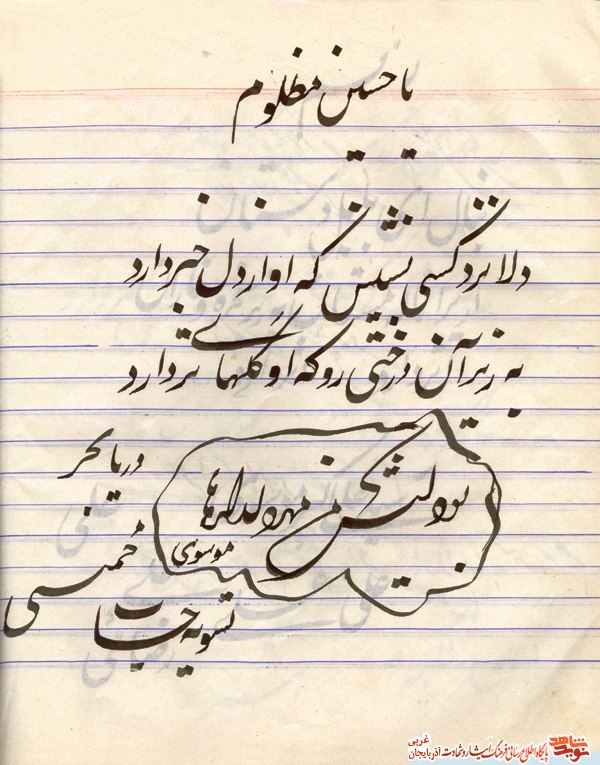 یا حسین مظلوم
دلا نزد کسی بنشین که او از دل خبر دارد
به زیر آن درختی رو که او گلهای تر دارد
من
دریا بحر
موسوی
خمینی
تسویه حساب
نوید شاهد
پایگاه اطلاع رسانی فرهنگ ایثار و شهادت آذربایجان غربی